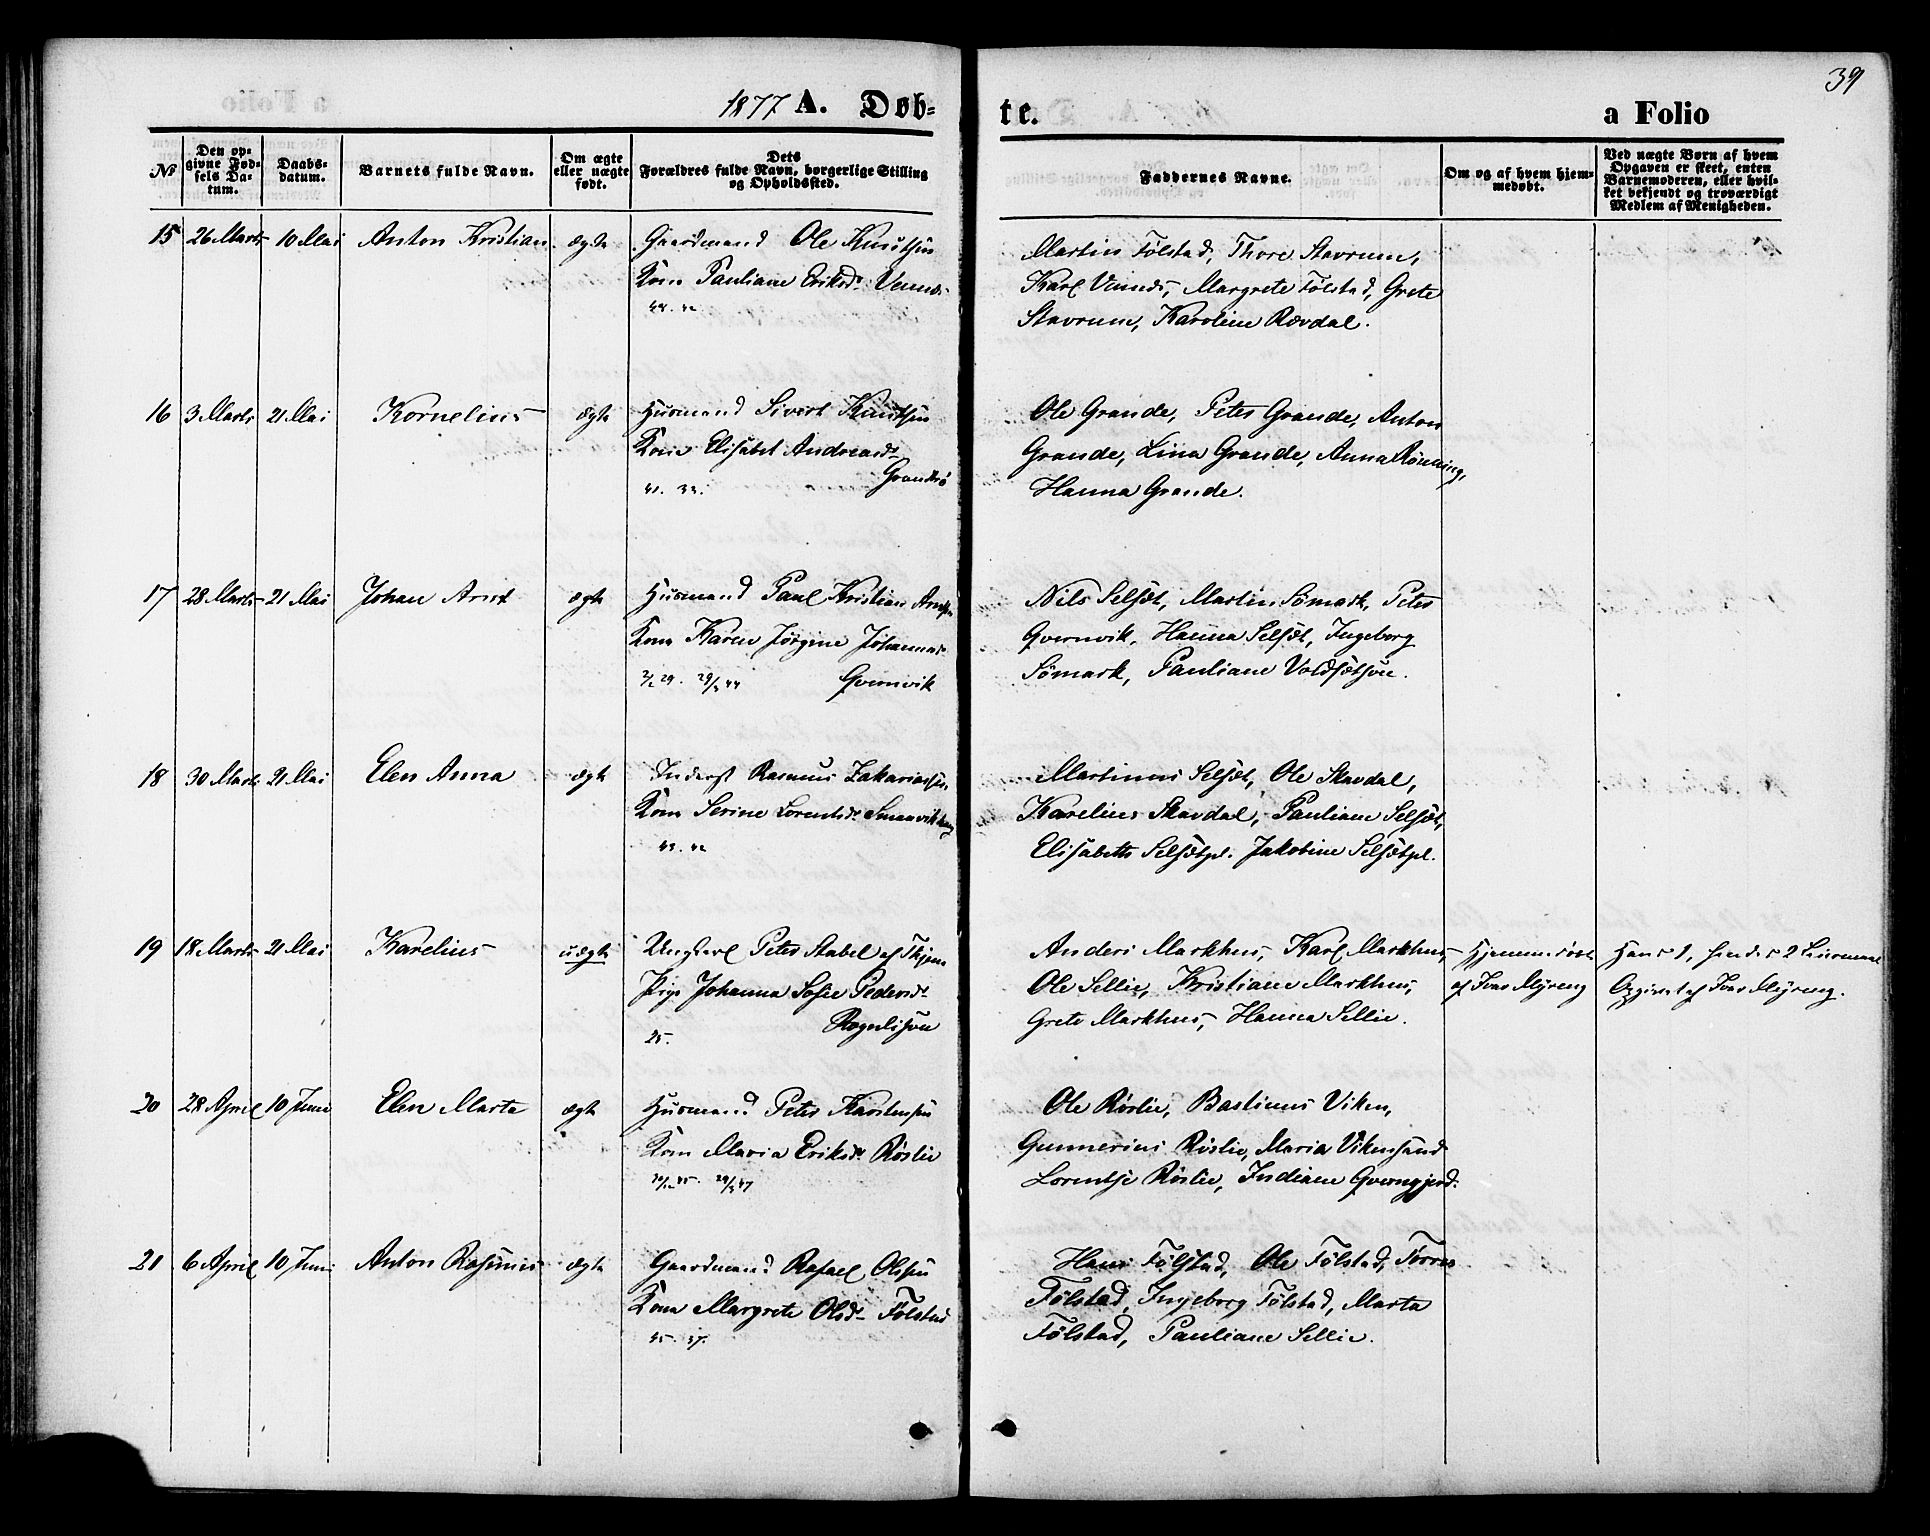 39
1877 A. Døb-
te.
a Folio
№
Den op-
givne Fød-
sels Da-
tum.
Daabs-
datum.
Barnets fulde Navn.
Om ægte
eller uægte
født.
Dets
Forældres fulde Navn, borgerlige Stilling
og Opholdssted.
Faddernes Navne.
Om og af hvem hjem-
medøbt.
Ved uægte Børn af hvem
Opgaven er skeet, enten
Barnemoderen, eller hvil-
ket bekjendt og troværdigt
Medlem af Menigheden.
15 26 Marts 10 Mai Anton Kristian ægte Gaardmand Ole Knutsen
Kone Pauliane Eriksd. Vennes
44. 42
Martin Følstad, Thore Stavrum,
Karl Vennes, Margrete Følstad, Grete
Stavrum, Karoline Rovdal.
16 3 Marts 21 Mai Kornelius ægte Husmand Sivert Knutsen
Kone Elisabet Andreasd.
41. 33.
Ole Grande, Peter Grande, Anton
Grande, Lina Grande, Anna Rønning,
Hanna Grande.
17 28 Marts 21 Mai Johan Arnt ægte Husmand Paul Kristian Arntsen
Kone Karen Jørgine Johannesd.
29. 29/3 44 Qvernvik
Nils Selsæt, Martin Sømark, Peter
Qvernvik, Hanna Selsæt, Ingeborg
Sømark, Pauliane Voldsætsøen.
18 30 Marts 21 Mai Elen Anna ægte Inderst Rasmus Zakariassen
Kone Serine Lorentsd.
43. 42
Martinus Selsæt, Ole Skavdal,
Karelius Skavdal, Pauliane Selsæt,
Elisabeth Selsætpl. Jakobine Selsætpl.
19 18 Marts 21 Mai Karelius uægte Ungkarl Peter Stabel af
Pige Johanna Sofie Pedersd.
25.
Anders Markhus, Karl Markhus,
Ole Sellie, Kristiane Markhus,
Grete Markhus, Hanna Sellie.
Hjemmedøbt
af Ivar Myreng
Hans 1, hendes 2 Leiermaal
Opgivet af Ivar Myreng.
20 28 April 10 Juni Elen Marta ægte Husmand Peter Karstensen
Kone Maria Eriksd. Røslie
45. 29/3 47
Ole Røslie, Bastinus Viken,
Gunnerius Røslie, Maria Vikensand
Lorentse Røslie, Indiane Qverngjerd.
21 6 April 10 Juni Anton Rasmus ægte Gaardmand Rafael Olsen
Kone Margrete Olsd. Følstad
45. 37.
Hans Følstad, Ole Følstad, Torres
Følstad, Ingeborg Følstad, Marta
Følstad, Pauliane Sellie.